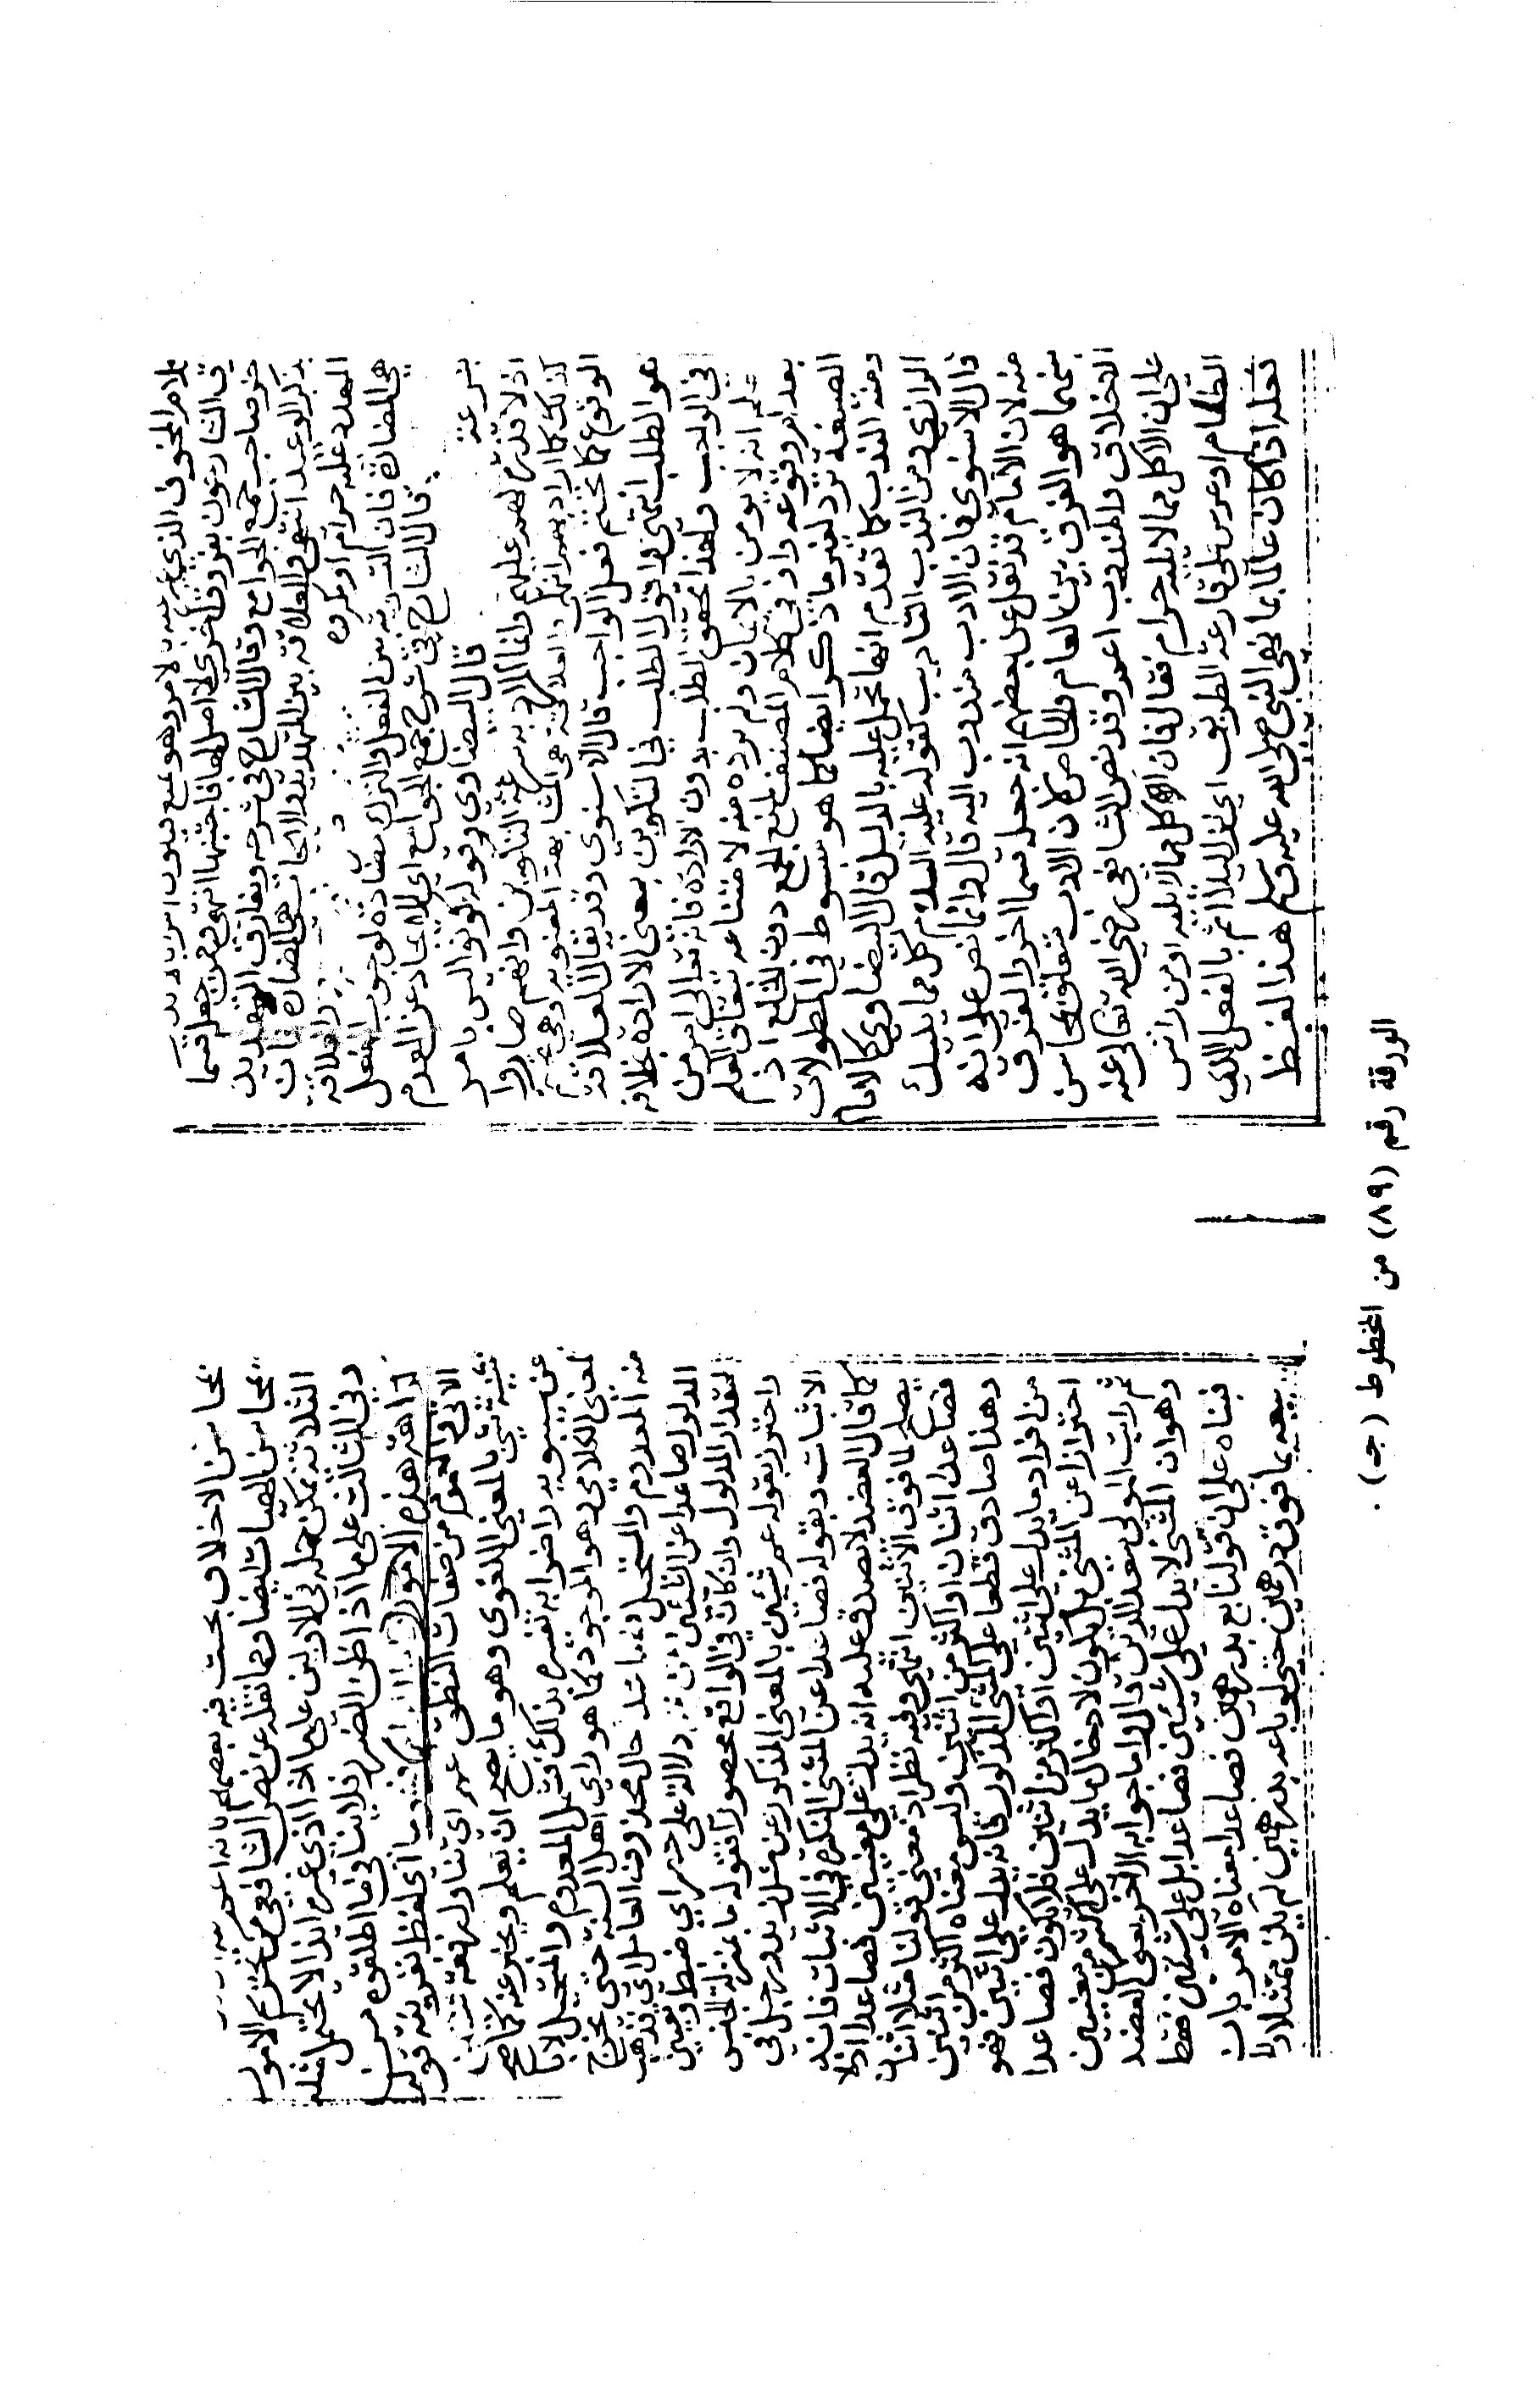 بلام المخوف الذي
ق الشارحون بفروق أخرى لا أصل لها فاجتنبها انتهى وممن جعله قسما
خر صاحب جمع الجوامع وقال الشارح في شرحه ويفارق التهديد
بذكر الوعيد انتهى والعلاقة بين التهديد والايجاب هي المضادة فان
المهدد عليه حرام أو مكروه
هي المضادة فان التسوية بين الفعل والترك مضادة لوجوب الفعل
قال الشارح في شرح جمع الجوامع اي الايجاد عن العدم
بسرعة
قال البيضاوي وقوله كونوا ليس بأمر
اذ لا قدرة لهم عليه وانما المراد به سرعة التكوين وانهم صاروا
كذلك كما اراد بهم انتهى والعلاقة هي المشابهة المعنوية وهي تحتم
الوقوع كما تحتم فعل الواجب قال الاسنوي وقد يقال العلاقة
هو الطلب انتهى واقول الطلب في التكوين بمعنى الارادة بخلافه
في الواجب ولهذا تحقق الطلب بدون الارادة فانه تعالى امر من
علم انه لا يؤمن بالايمان ولم يرده منه لامتناعه
بعد امر وقوعه واو في كلام المصنف لمنع الجمع دون الخلو اذ
الصيغة ترد لغير ما ذكر ايضا كما هو مبسوط في المطولات
ومنه الندب كما تقدم انفا تحمل عليه بالدليل قال البيضاوي كالامام
الرازي ومن الندب التاديب كقوله عليه السلام كل مما يليك
قال الاسنوي فان الادب مندوب اليه قال وانما نص على انه
منه لان الامام قد نقل عن بعضهم انه جعله قسما اخر والفرق
بينهما هو الفرق بين العام والخاص كان الادب متعلق بمحاسن
الاخلاق والمندوب اعم وقد نص الشافعي رضي الله تعالى عنه
على ان الاكل مما لا يليه حرام فقال فان اكل مما لا يليه او من راس
الطعام او عرس على قارعة الطريق اي نزل ليلا اثم بالفعل الذي
فعله اذا كان عالما بما نهى النبي صلى الله عليه وسلم هذا لفظه
محاسن الاخلاق بحث فيه بعضهم بانه اعم
محاسن الهيات ايضا وما نقله عن نص الشافعي من تحريم الامور
الثلاثة يمكن حمله في الاولين على ما اذا اذى غيره اذ الاكل مثله
وفي الثالث على ما اذا ظن الضرر فلا ينافي ما اطلقوه من
كراهة هذه الامور
الاتي العام من صفات النطق عم اي تناول دفعة
شيئين بالمعنى اللغوي وهو ما يصح ان يعلم ويخبر عنه كما صح
عن سيبويه راضوا به تفسيره بذلك فشمل المعدوم والمستحيل لا
لمعنى الكلامي وهو الموجود كما هو راي اهل السنة حتى يخرج
منه المعدوم والمستحيل فصاعدا حال محذوف العامل اي فذهب
المدلول صاعدا عن الشيئين
لمقدار المدلول وان كان في الواقع محصورا
واحترز بقوله عم شيئين بالمعنى المذكور عن مثل زيد ورجل في
الاثبات وبقوله فصاعدا عن المثنى النكرة في الاثبات فانه
كما قال العضد لا يصدق عليه انه يدل على معنيين فصاعدا اذ لا
يصلح لما فوق الاثنين انتهى وفيه نظر اذ معنى قولنا مثلا اثنان
فصاعدا اثنان او اكثر من اثنين وليس معناه اكثر من اثنين
وهذا صادق قطعا على المثنى المذكور فانه يدل على اثنين فهو
من افراد ما يدل على اثنين او اكثر من اثنين فلا يكون فصاعدا
احترازا عن المثنى بل يكون لادخال ما يدل على اكثر من معنيين
ثم رايت المولى سعد الدين قال واما جوابه الاخر يعني العضد
وهو ان المثنى لا يدل على شيئين فصاعدا بل على شيئين فقط
فبناه على ان قولنا بع بدرهمين فصاعدا معناه الامر بان
يبيعه بما فوق درهمين حتى لو باعه بدرهمين لم يكن ممتثلا ولا
الورقة رقم (٨٩) من المخطوط (ج) .